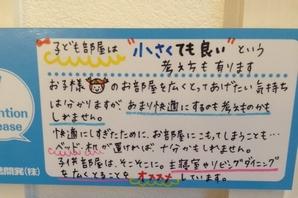 子ども部屋は "小さくても良い" という
考え方も有ります
お子様のお部屋を広くとってあげたい気持ち
は分かりますが、あまり快適にするのも考えものかも
しれません。
快適にしすぎたために、お部屋にこもってしまうことも…
ベッド・机が置ければ、十分かもしれません。
子供部屋は、そこそこに。主寝室やリビングダイニング
を広くとることをオススメしています。
ntion
ease
開発(株)